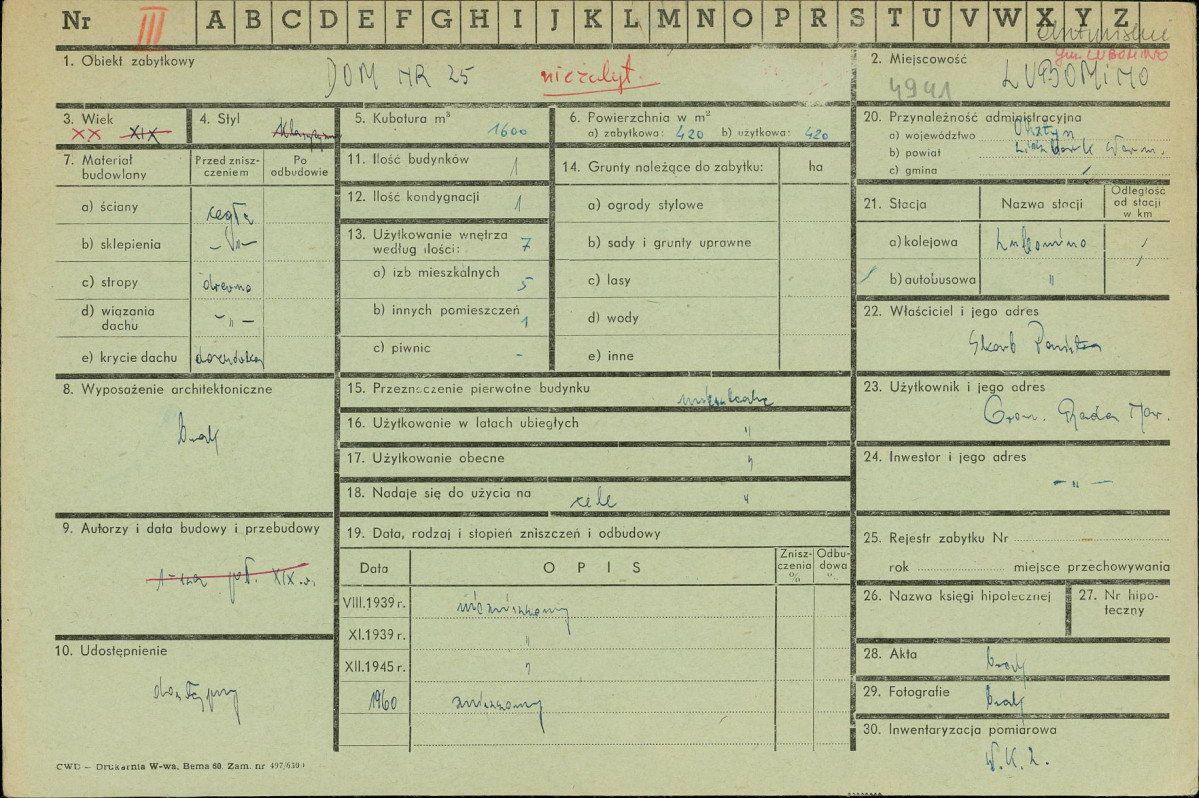 Nr III A B C D E F G H I J K L M N O P R S T U V W X Y Z
gm. LUBOMINO
1. Obiekt zabytkowy DOM NR 25 niezabyt.
2. Miejscowość LUBOMINO
4941
3. Wiek XX XIX
4. Styl
5. Kubatura m³ 1600
6. Powierzchnia w m²
a) zabytkowa: 420 b) użytkowa: 420
7. Materiał budowlany
Przed zniszczeniem
Po odbudowie
a) ściany cegła
b) sklepienia – " –
c) stropy drewno
d) wiązania dachu – " –
e) krycie dachu dachówka
8. Wyposażenie architektoniczne
brak
9. Autorzy i data budowy i przebudowy
1-sza poł. XIX w.
10. Udostępnienie
dostępny
11. Ilość budynków 1
12. Ilość kondygnacji 1
13. Użytkowanie wnętrza według ilości: 7
a) izb mieszkalnych 5
b) innych pomieszczeń 1
c) piwnic -
14. Grunty należące do zabytku: ha
a) ogrody stylowe
b) sady i grunty uprawne
c) lasy
d) wody
e) inne
15. Przeznaczenie pierwotne budynku mieszkalne
16. Użytkowanie w latach ubiegłych "
17. Użytkowanie obecne "
18. Nadaje się do użycia na cele "
19. Data, rodzaj i stopień zniszczeń i odbudowy
Data
OPIS
Zniszczenia %
Odbudowa
VIII.1939 r. niezniszczony
XI.1939 r. "
XII.1945 r. "
1960 zniszczony
20. Przynależność administracyjna
a) województwo Olsztyn
b) powiat Lidzbark Warm.
c) gmina
21. Stacja
Nazwa stacji
Odległość od stacji w km
a) kolejowa Lubomino
b) autobusowa "
22. Właściciel i jego adres
Skarb Państwa
23. Użytkownik i jego adres
Grom. Rada Nar.
24. Inwestor i jego adres
– " –
25. Rejestr zabytku Nr
rok miejsce przechowywania
26. Nazwa księgi hipotecznej
27. Nr hipoteczny
28. Akta brak
29. Fotografie brak
30. Inwentaryzacja pomiarowa
CWD – Drukarnia W-wa, Bema 60. Zam. nr